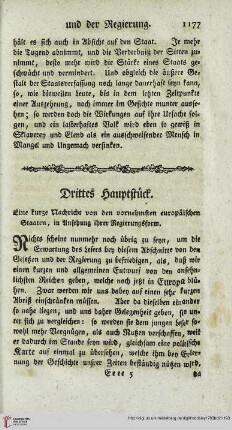 und der Regierung. 1177
hält es sich auch in Absicht auf den Staat. Je mehr
die Tugend abnimmt, und die Verderbniß der Sitten zu-
nimmt, desto mehr wird die Stärke eines Staats ge-
schwächt und vermindert. Und obgleich die äußere Ge-
stalt der Staatsverfassung noch lange dauerhaft seyn kann,
so, wie bisweilen leute, bis in dem letzten Zeitpunkte
einer Auszehrung, noch immer im Gesichte munter ausse-
hen; so werden doch die Wirkungen auf ihre Ursache fol-
gen, und ein lasterhaftes Volk wird eben so gewiß in
Sklaverey und Elend als ein ausschweifender Mensch in
Mangel und Ungemach versinken.
Drittes Hauptstück.
Eine kurze Nachricht von den vornehmsten europäischen
Staaten, in Ansehung ihrer Regierungsform.
Nichts scheint nunmehr noch übrig zu seyn, um die
Erwartung des Lesers bey diesem Abschnitte von den
Gesetzen und der Regierung zu befriedigen, als, daß wir
einen kurzen und allgemeinen Entwurf von den ansehn-
lichsten Reichen geben, welche noch jetzt in Europa blü-
hen. Zwar werden wir uns dabey auf einen sehr kurzen
Abriß einschränken müssen. Aber da dieselben einander
so nahe liegen, und uns daher Gelegenheit geben, sie un-
ter sich zu vergleichen: so werden sie dem Leser für sowol
mehr Vergnügen, als auch mehr Nutzen verschaffen, weil
er dadurch im Stande seyn wird, gleichsam eine politische
Karte auf einmal zu übersehen, welche ihm bey Erler-
nung der Geschichte unserer Zeiten beständig nützen wird.
Eeee 5 Da